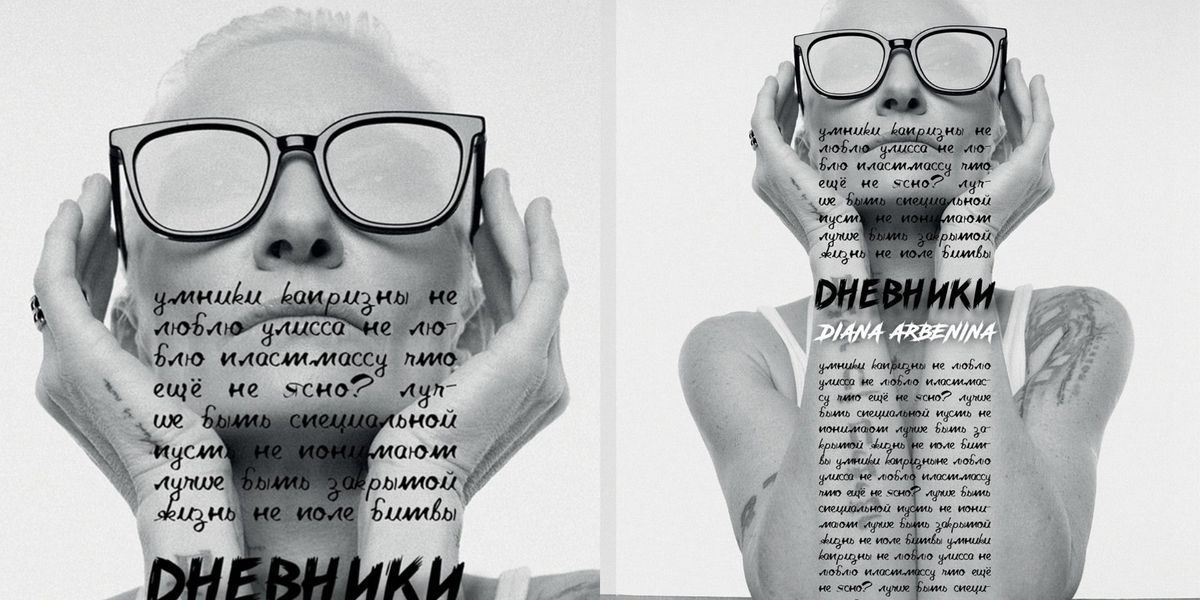 умники капризны не
люблю улисса не лю-
блю пластмассу что
ещё не ясно? луч-
ше быть специальной
пусть не понимают
лучше быть закрытой
жизнь не поле битвы
DНЕВНИКИ
умники капризны не
люблю улисса не лю-
блю пластмассу что
ещё не ясно? луч-
ше быть специальной
пусть не понимают
лучше быть закрытой
жизнь не поле битвы
DНЕВНИКИ
DIANA ARBENINA
умники капризны не люблю
улисса не люблю пластмас-
су что ещё не ясно? лучше
быть специальной пусть не
понимают лучше быть за-
крытой жизнь не поле бит-
вы умники капризныне люблю
улисса не люблю пластмассу
что ещё не ясно? лучше быть
специальной пусть не пони-
мают лучше быть закрытой
жизнь не поле битвы умники
капризны не люблю улисса не
люблю пластмассу что ещё
не ясно? лучше быть специ-